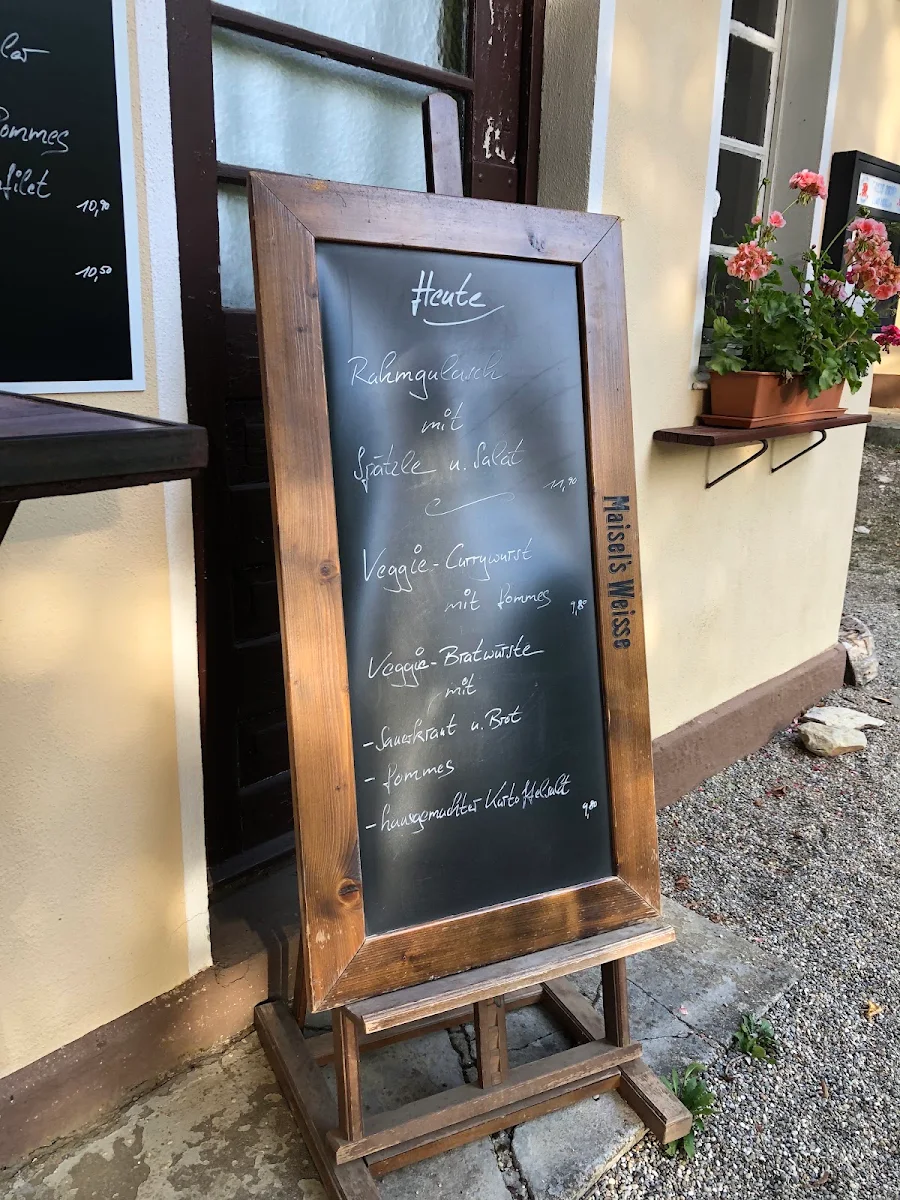 Pommes
10,90
10,50
Heute
Rahmgulasch
mit
Spätzle u. Salat
11,90
Veggie-Currywurst
mit Pommes 9,80
Veggie-Bratwürste
mit
- Sauerkraut u. Brot
- Pommes
- hausgemachter Kartoffelsalat 9,80
Maisel's Weisse